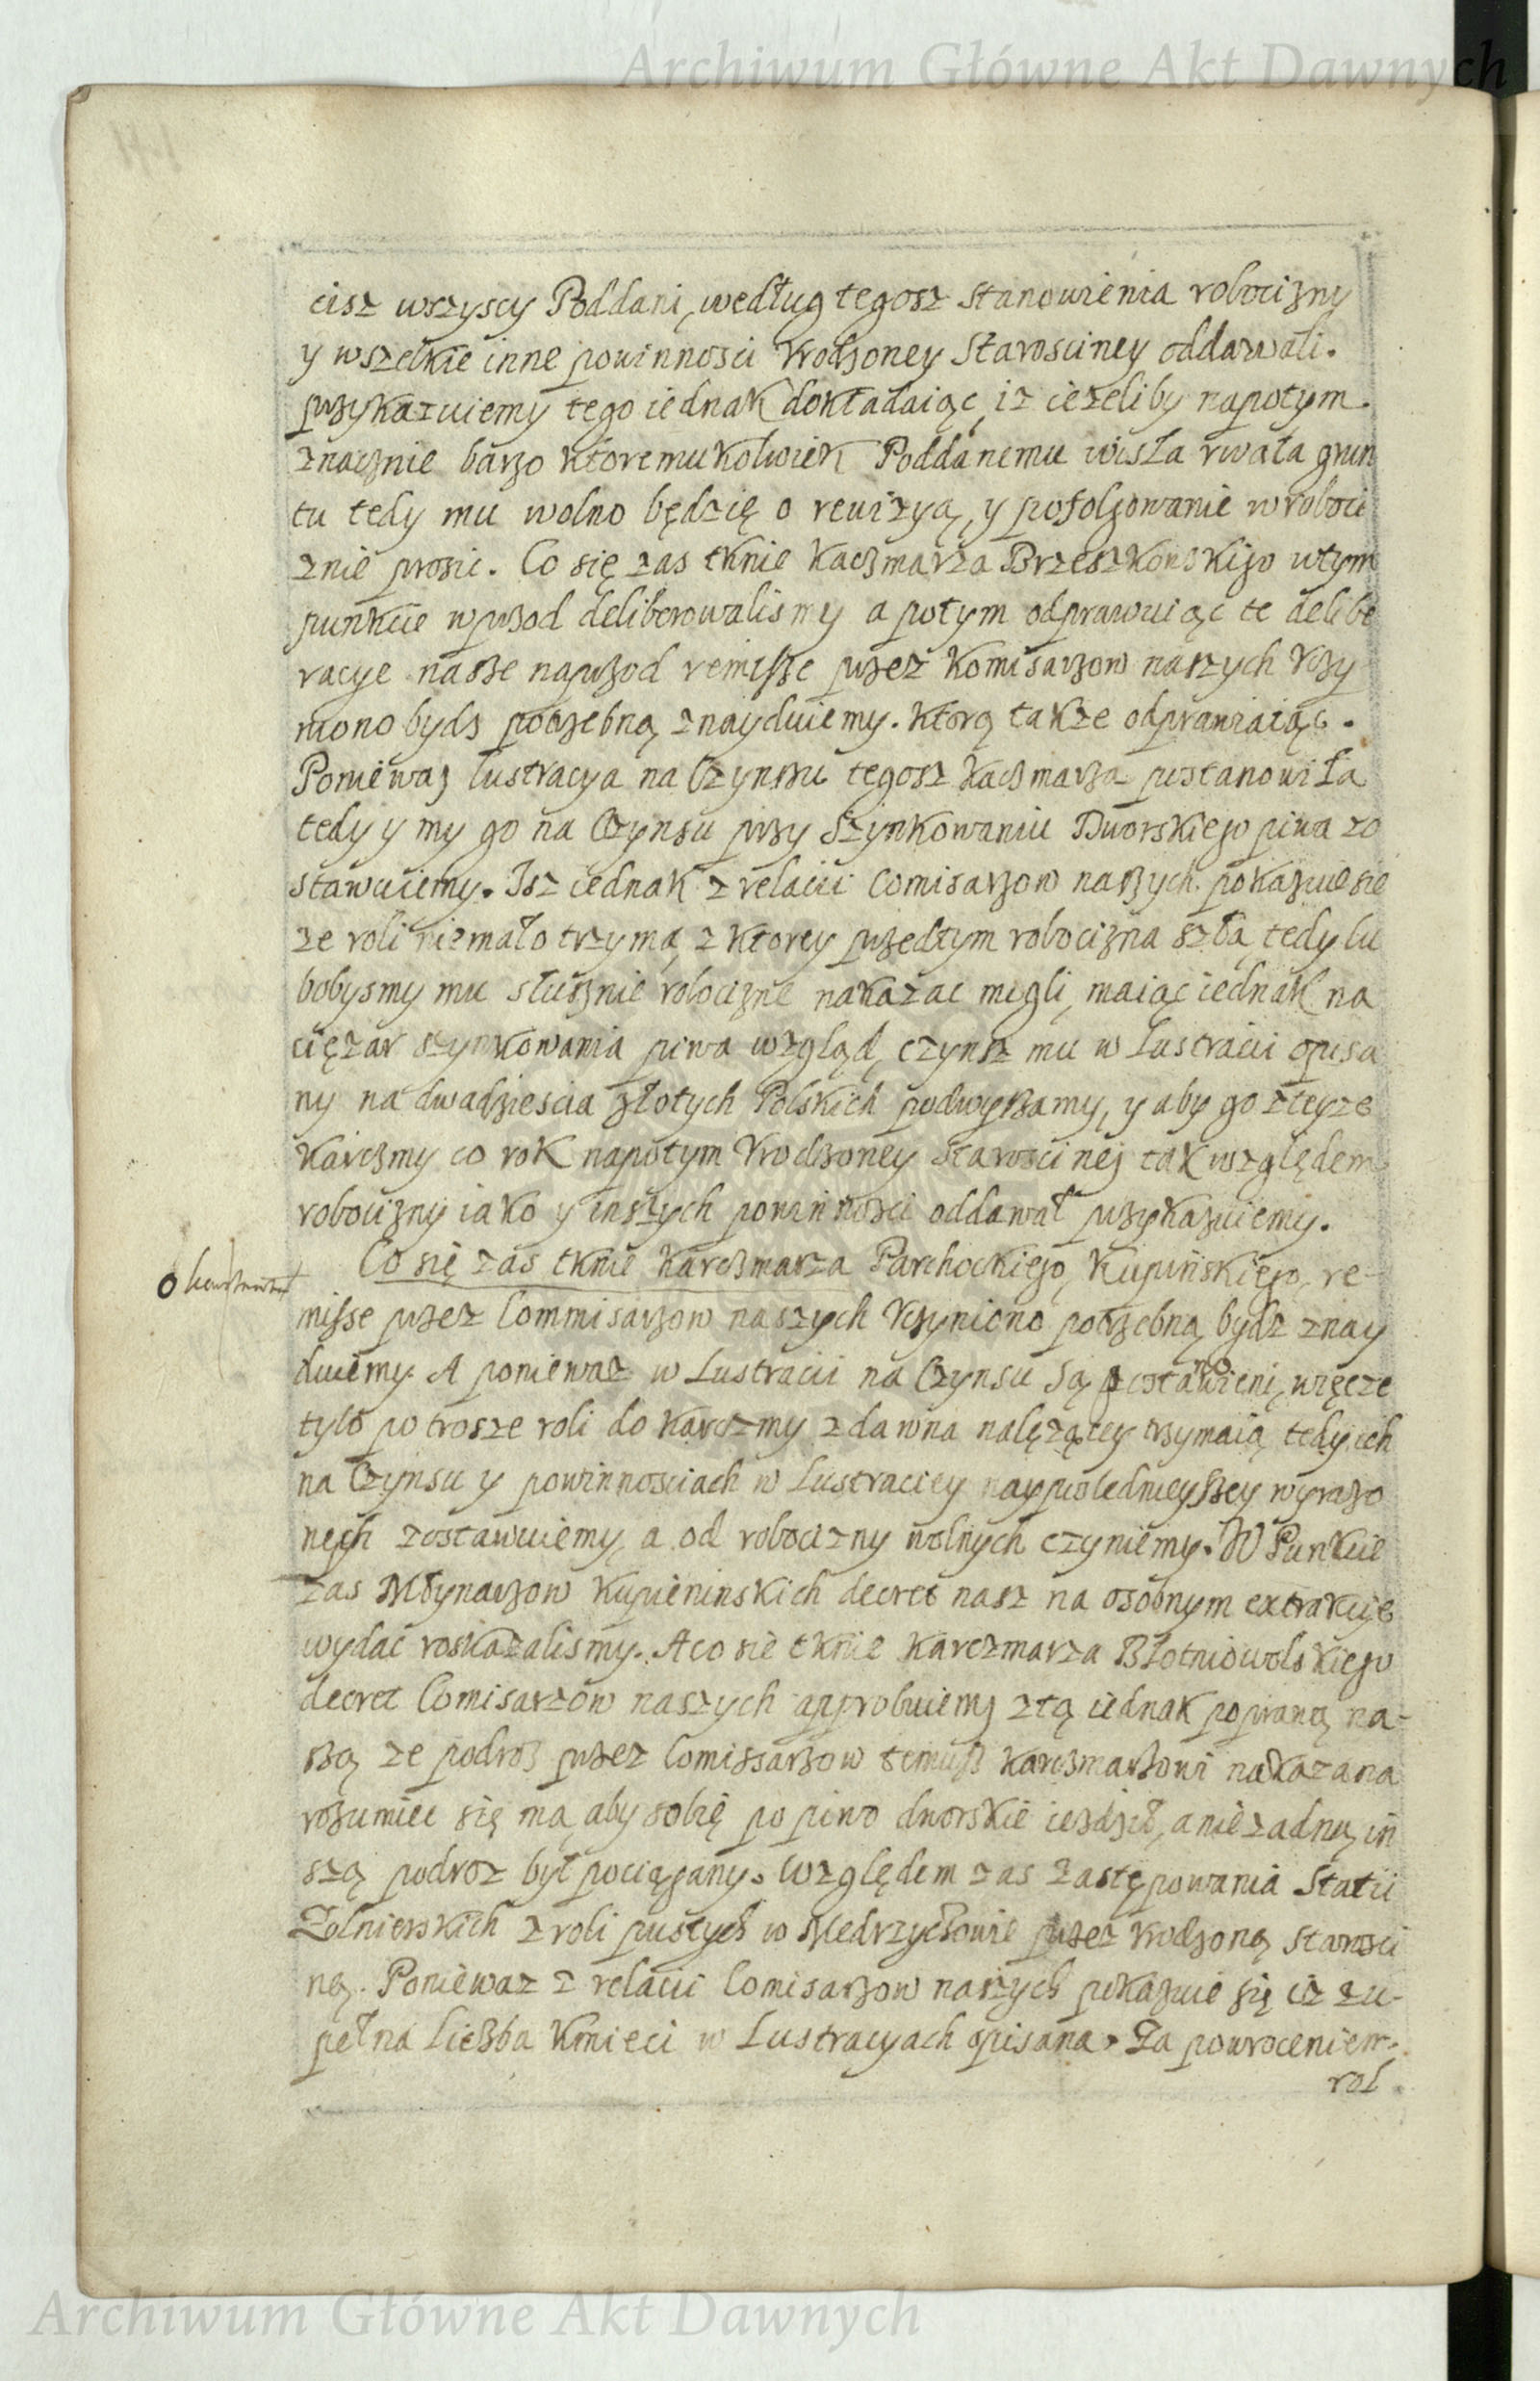 Archiwum Główne Akt Dawnych
cisz wszyscy Poddani, według tegosz stanowienia robocizny
y wszelkie inne powinnosci Vrodzoney Starosciney oddawali.
przykazuiemy tego iednak dokładaiąc, iz ieżeliby napotym.
znacznie barzo ktoremukolwiek Poddanemu wisła rwała grun
tu tedy mu wolno będzię o rewizyą, y pofolgowanie w roboci
znie prosic. Co się zas tknie Kaczmarza Brzeszkonskigo wtym
punkcie wprzod deliberowalismy a potym odprawuiąc te delibe
racye nasze naprzod remisse przez Komisarzow naszych Vczy
niono bydz potrzebną znayduiemy. Ktorą takze odprawiaiąc.
Poniewaz lustracya na Czynszu tegosz Kaczmarza postanowiła
tedy y my go na Czynsu przy Szynkowaniu Dworskiego piwa zo
stawuiemy. Isz iednak z relacii Comisarzow naszych pokazuie sie
ze roli niemało trzyma, z ktorey przedtym robocizna szła, tedy lu
bobysmy mu słusznie robocizne nakazac mogli, maiąc iednak na
ciężar szynkowania piwa wzgląd, czynsz mu w Lustracii opisa
ny na dwadziescia złotych Polskich podwyszamy, y aby go zteyze
Karczmy co rok napotym Vrodzoney Starosciney tak względem
robocizny iako y inszych powinnosci oddawał przykazuiemy.
Co się zas tknie Karczmarza Parchockiego, Kupinskiego, re-
misse przez Commisarzow naszych Vczyniono potrzebną bydz znay
duiemy. A poniewaz w Lustracii na Czynsu są postanowieni, więcze
tylo po trosze roli do Karczmy zdawna nalężącey trzymaią tedy ich
na Czynsu y powinnosciach w Lustraciey nayposlednieyszey wyrazo
nych zostawuiemy, a od robocizny wolnych czyniemy. W Punkcie
zas Młynarzow Kupieninskich decret nasz na osobnym extrakcie
wydać roskazalismy. A co sie tknie Karczmarza Błotniowolskiego
decret Comisarzow naszych approbuiemy ztą iednak poprawą na-
szą ze podroz przez Comissarzow temusz Karczmarzowi nakazana
rozumiec się ma, aby sobię po piwo dworskie iezdził, a nie zadną in
szą podroz był pociągany. Względem zas zastępowania Statii
Zolnierskich z roli pustych w Medrzychowie przez Vrodzoną Starosci
ną. Poniewaz z relacii Comisarzow naszych pokazuie się iz zu-
pełna Liczba Kmieci w Lustracyach opisana. Za powroceniem
rol
Archiwum Główne Akt Dawnych